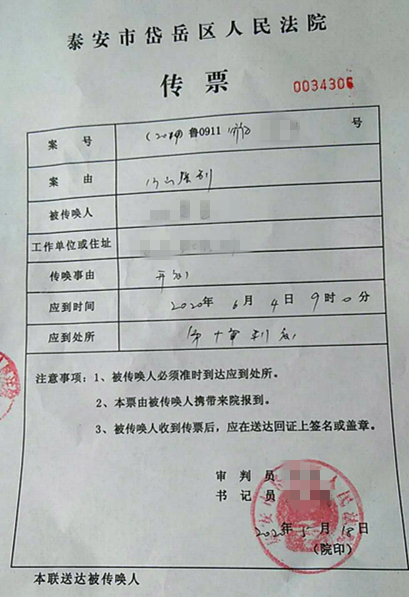 泰安市岱岳区人民法院
传票
0034306
案号 (2019)鲁0911 号
案由
被传唤人
工作单位或住址
传唤事由 开庭
应到时间 2020年6月4日9时0分
应到处所 第十审判庭
注意事项：1、被传唤人必须准时到达应到处所。
2、本票由被传唤人携带来院报到。
3、被传唤人收到传票后，应在送达回证上签名或盖章。
审判员
书记员
2020年5月18日
(院印)
本联送达被传唤人